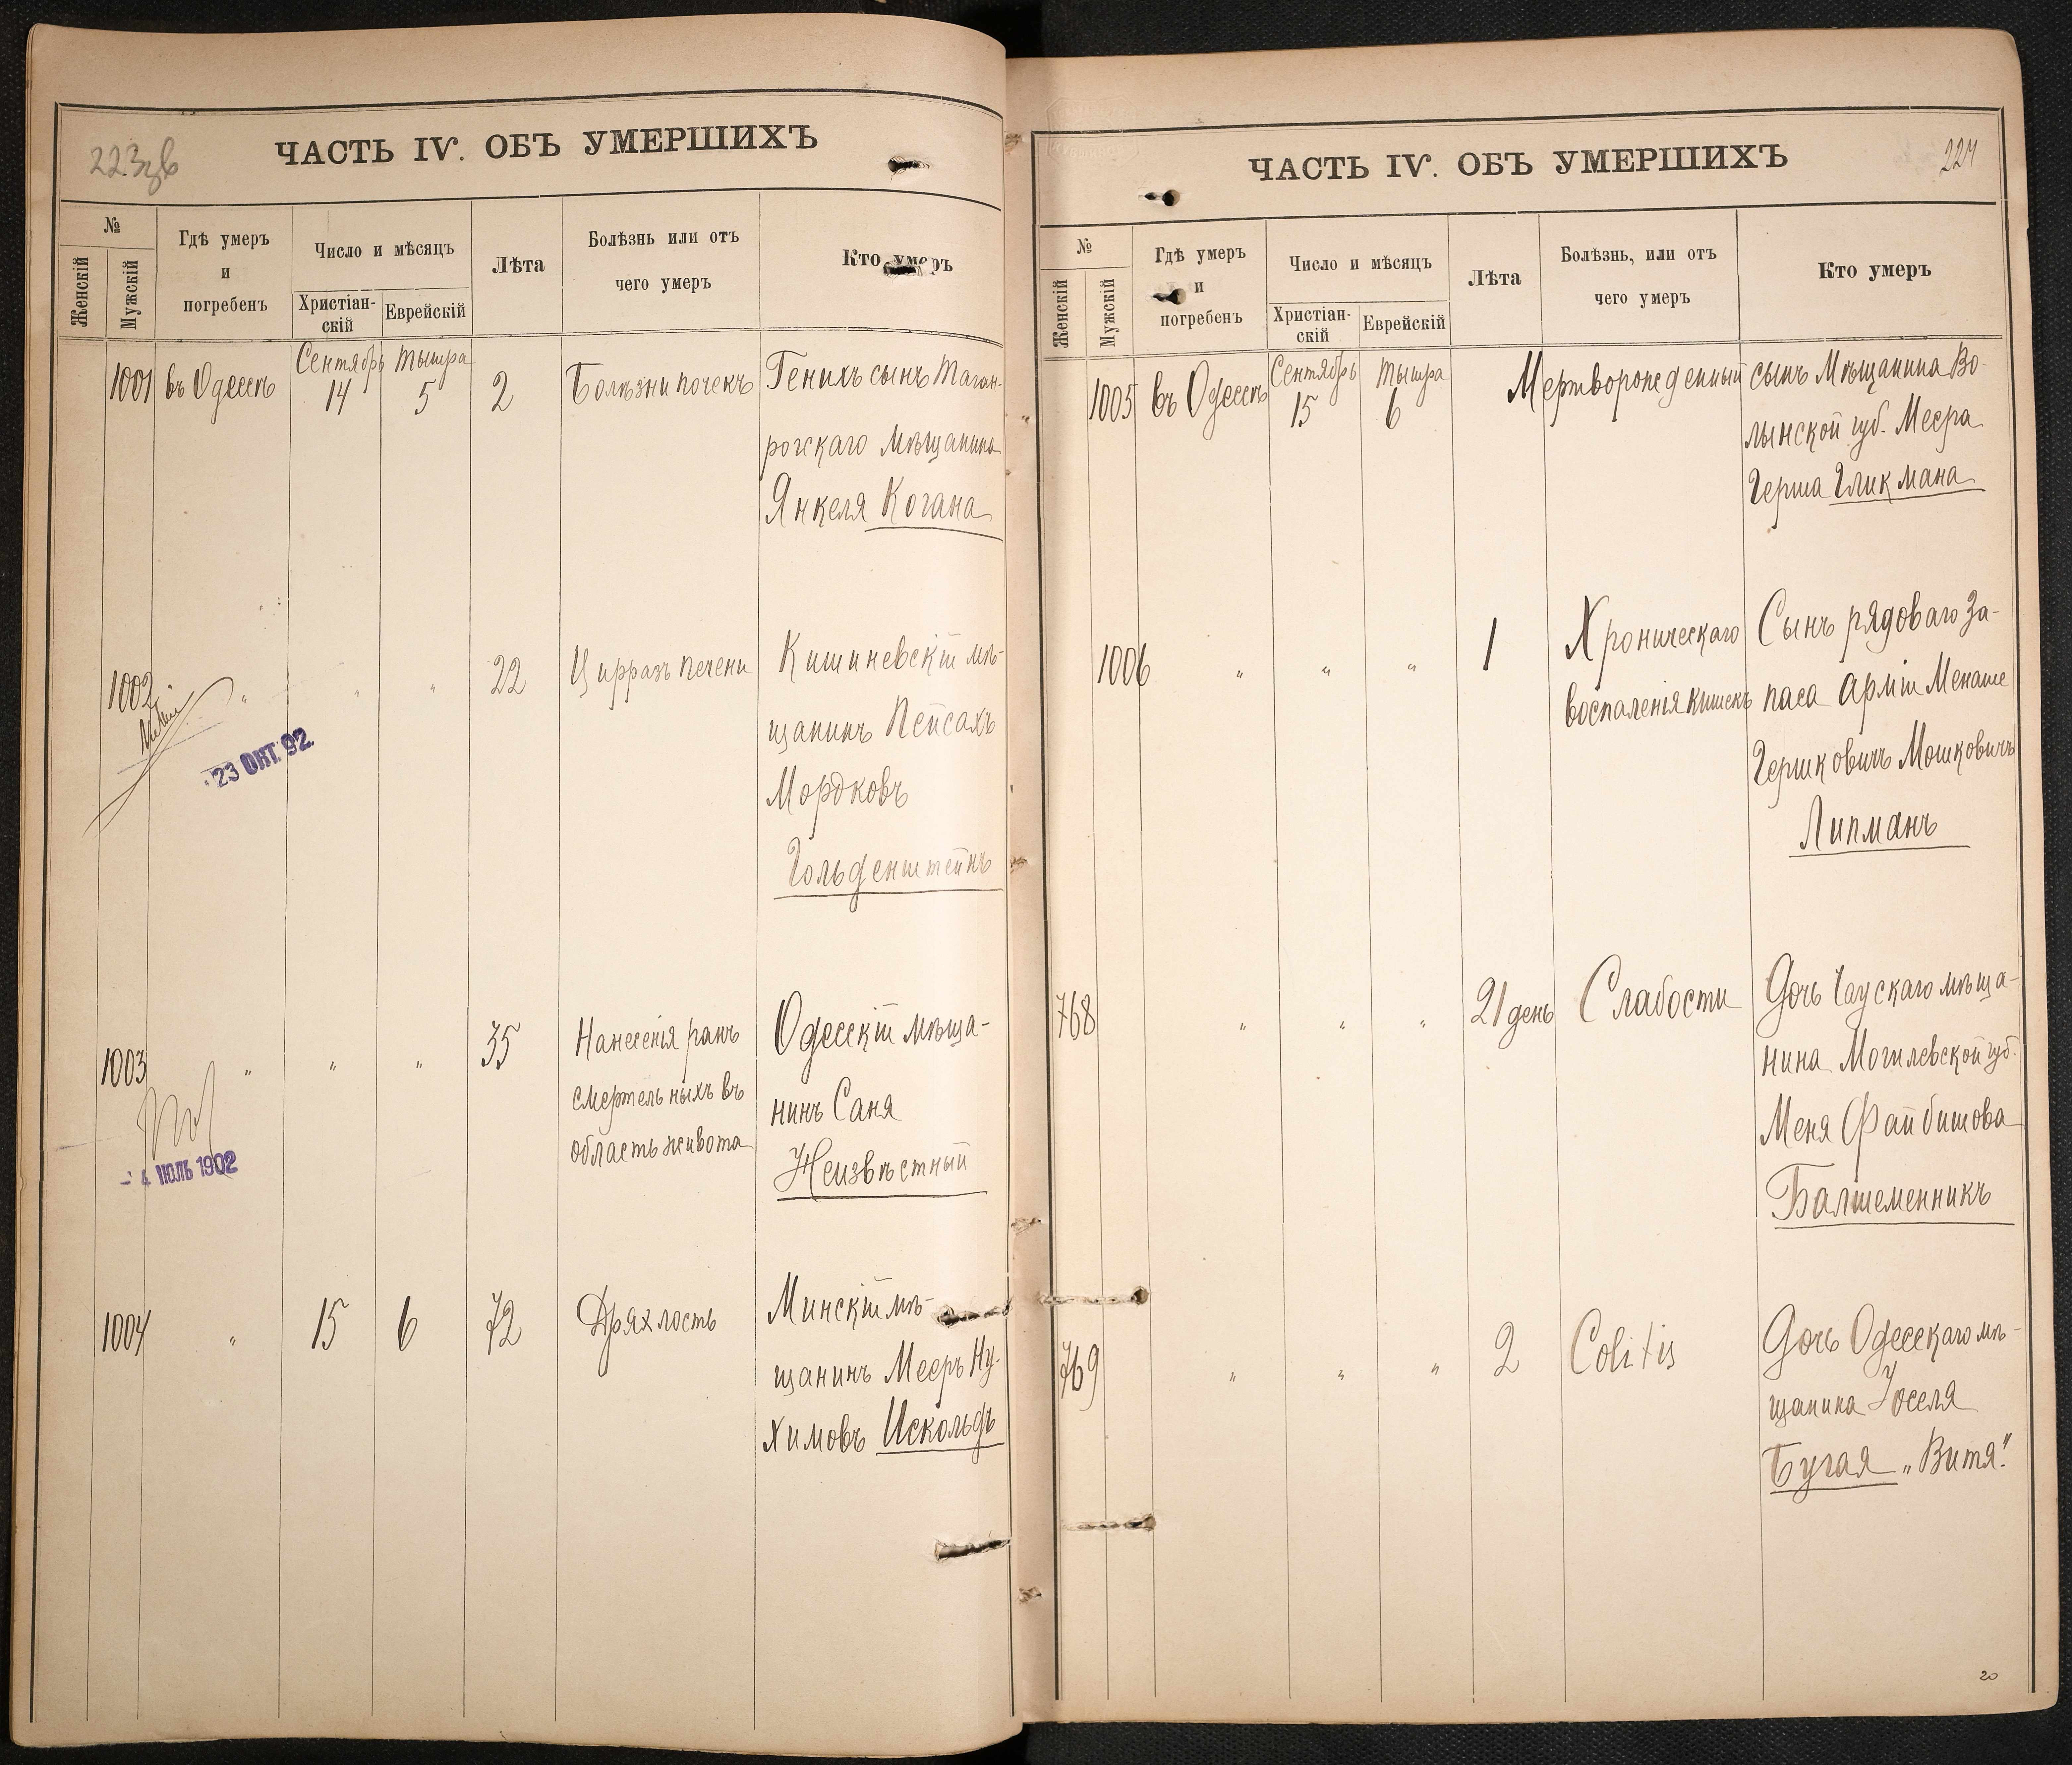 223 об
ЧАСТЬ IV. ОБЪ УМЕРШИХЪ
№
Женскій
Мужскій
Гдѣ умеръ
и
погребенъ
Число и мѣсяцъ
Христіан-
скій
Еврейскій
Лѣта
Болѣзнь или отъ
чего умеръ
Кто умеръ
1001 въ Одессѣ Сентябрь 14 Тышра 5 2 Болѣзни почекъ Генихъ сынъ Таган-
рогскаго Мѣщанина
Янкеля Когана
1002 " " " 22 Циррозъ печени Кишиневскій мѣ-
щанинъ Пейсахъ
Мордковъ
Гольденштейнъ
23 ОКТ. 92
1003 " " " 35 Нанесенія ранъ Одесскій мѣща-
смертельныхъ въ нинъ Саня
область живота Неизвѣстный
- 4 ІЮЛЬ 1902
1004 " 15 6 72 Дряхлость Минскій мѣ-
щанинъ Мееръ Ну-
химовъ Искольдъ
ЧАСТЬ IV. ОБЪ УМЕРШИХЪ
224
№
Женскій
Мужскій
Гдѣ умеръ
и
погребенъ
Число и мѣсяцъ
Христіан-
скій
Еврейскій
Лѣта
Болѣзнь, или отъ
чего умеръ
Кто умеръ
1005 въ Одессѣ Сентябрь 15 Тышра 6 Мертворожденный сынъ Мѣщанина Во-
лынской губ. Меера
Герша Гликмана
1006 " " " 1 Хроническаго Сынъ рядоваго За-
воспаленія кишекъ паса Арміи Менаше
Гершковичъ Мошковичъ
Липманъ
768 " " " 21 день Слабости Дочь Чаускаго мѣща-
нина Могилевской губ.
Меня Файбишова
Балшеменникъ
769 " " " 2 Colitis Дочь Одесскаго мѣ-
щанина Іоселя
Бугая „Витя"
20